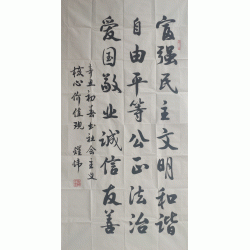 富强民主文明和谐
自由平等公正法治
爱国敬业诚信友善
辛丑初春书社会主义
核心价值观 耀伟